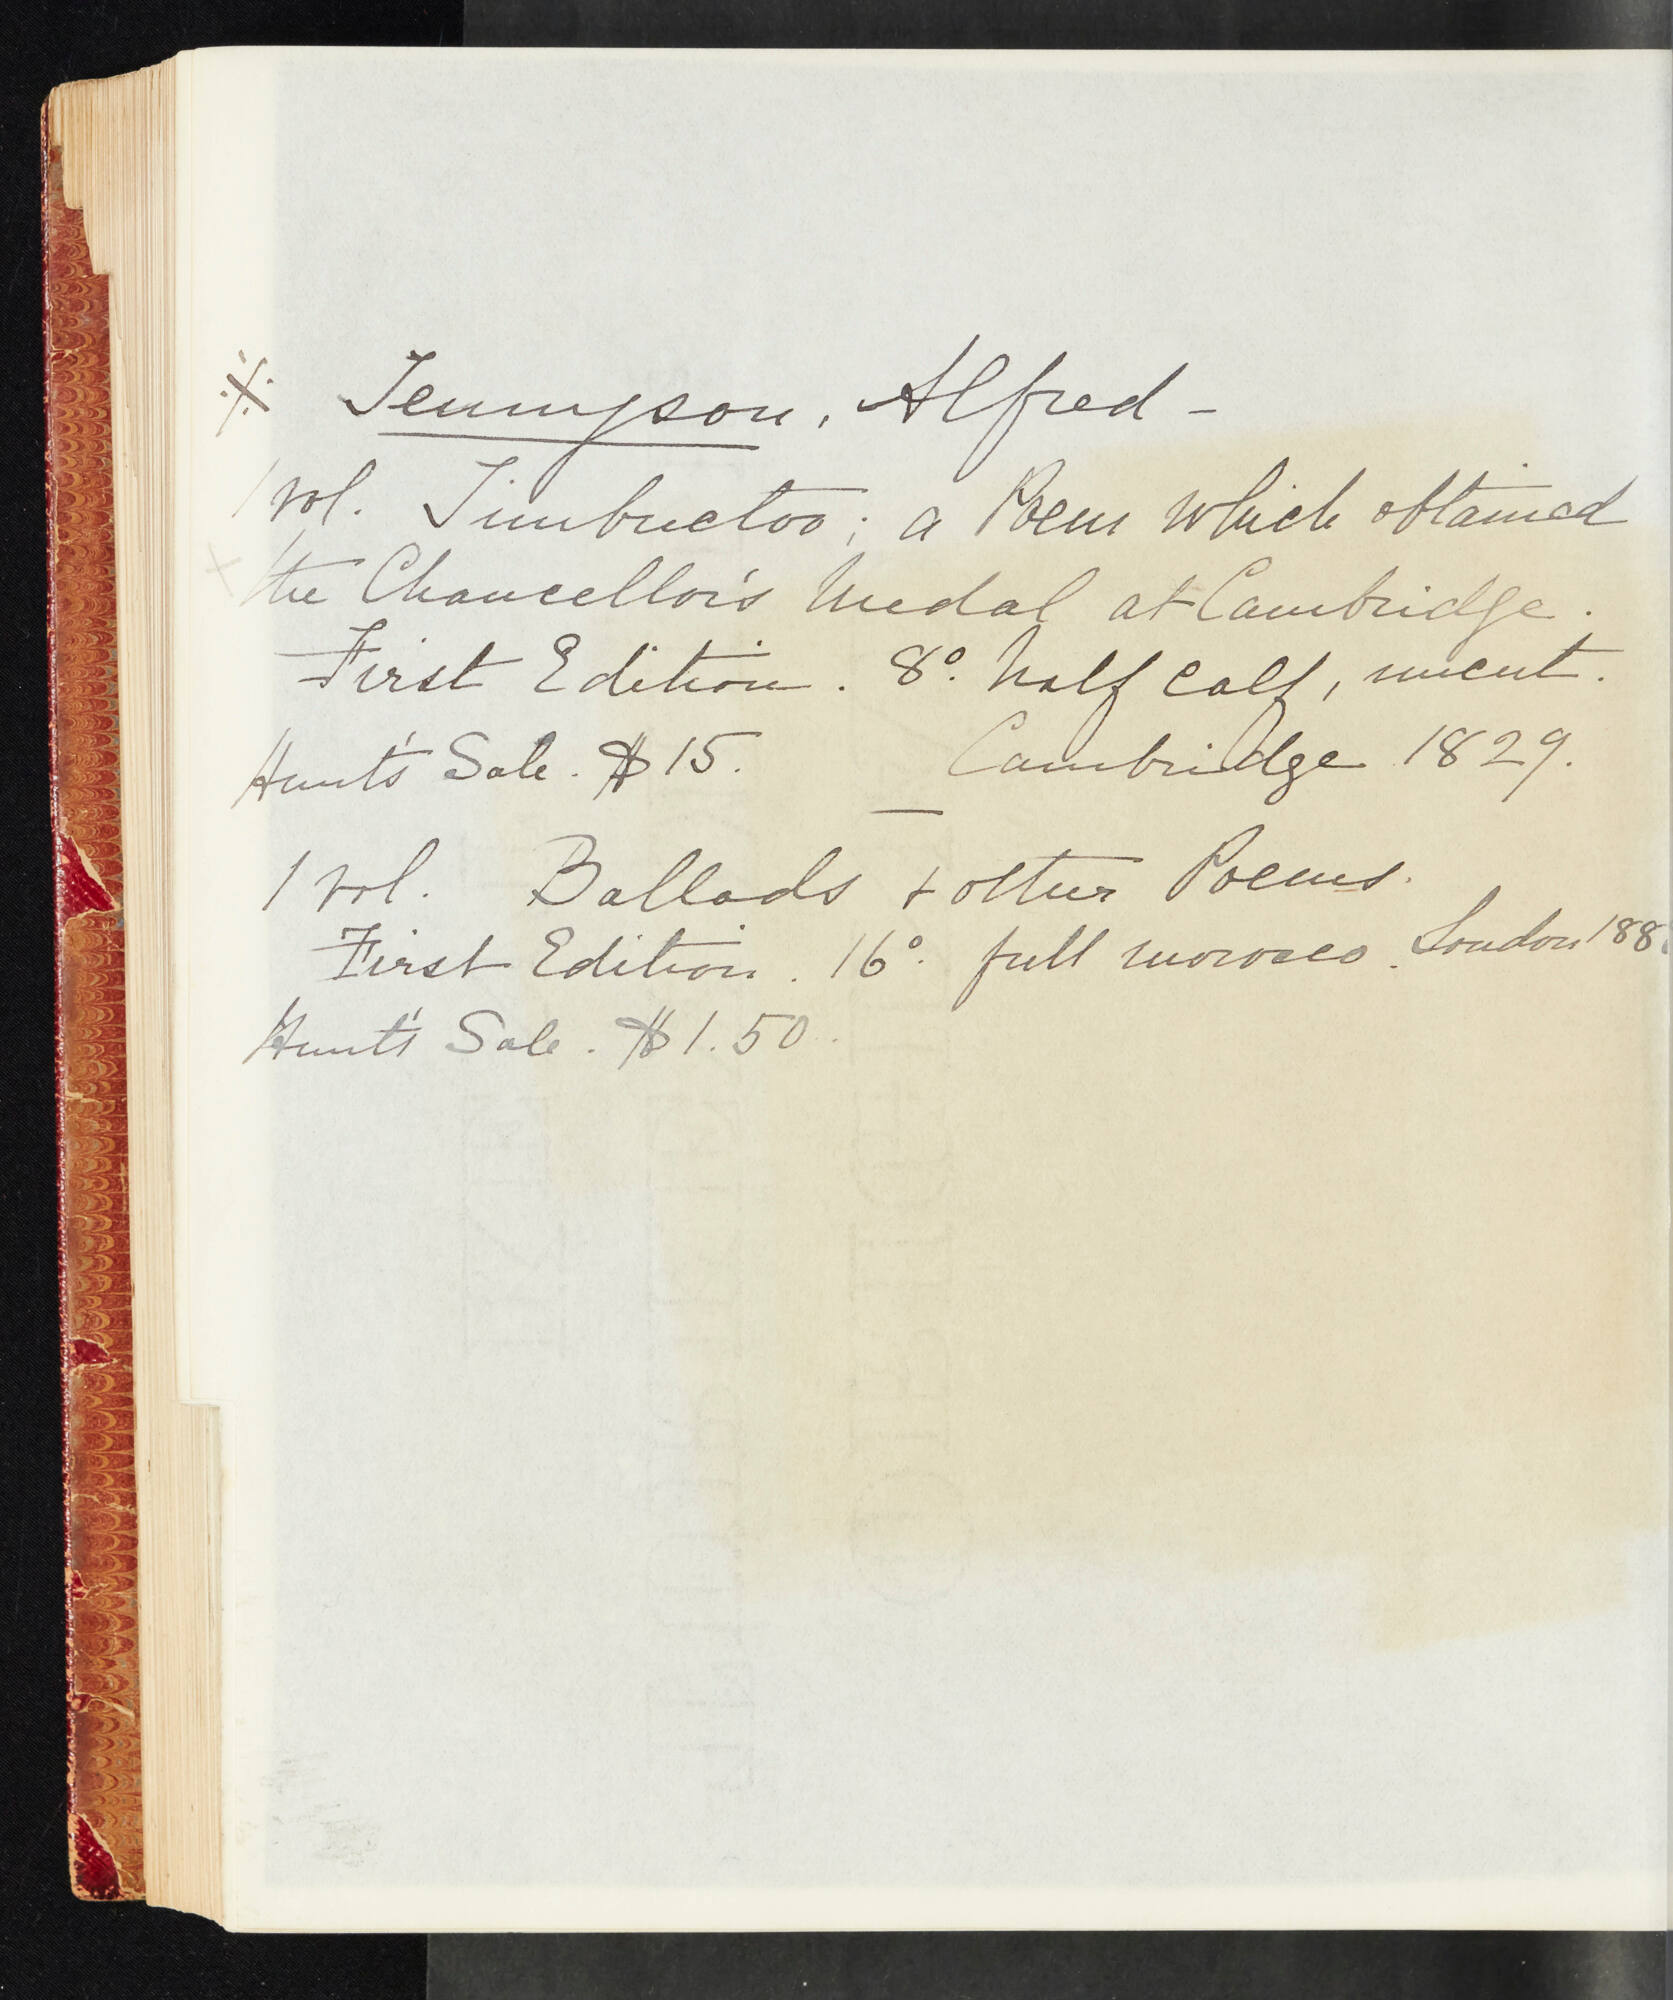 ※ Tennyson, Alfred -
1 vol. Timbuctoo; a Poem which obtained
the Chancellor's Medal at Cambridge.
First Edition. 8º. half calf, uncut.
Hunt's Sale. $15. Cambridge 1829.
1 vol. Ballads + other Poems.
First Edition. 16º. full morocco. London 188
Hunt's Sale. $1.50.